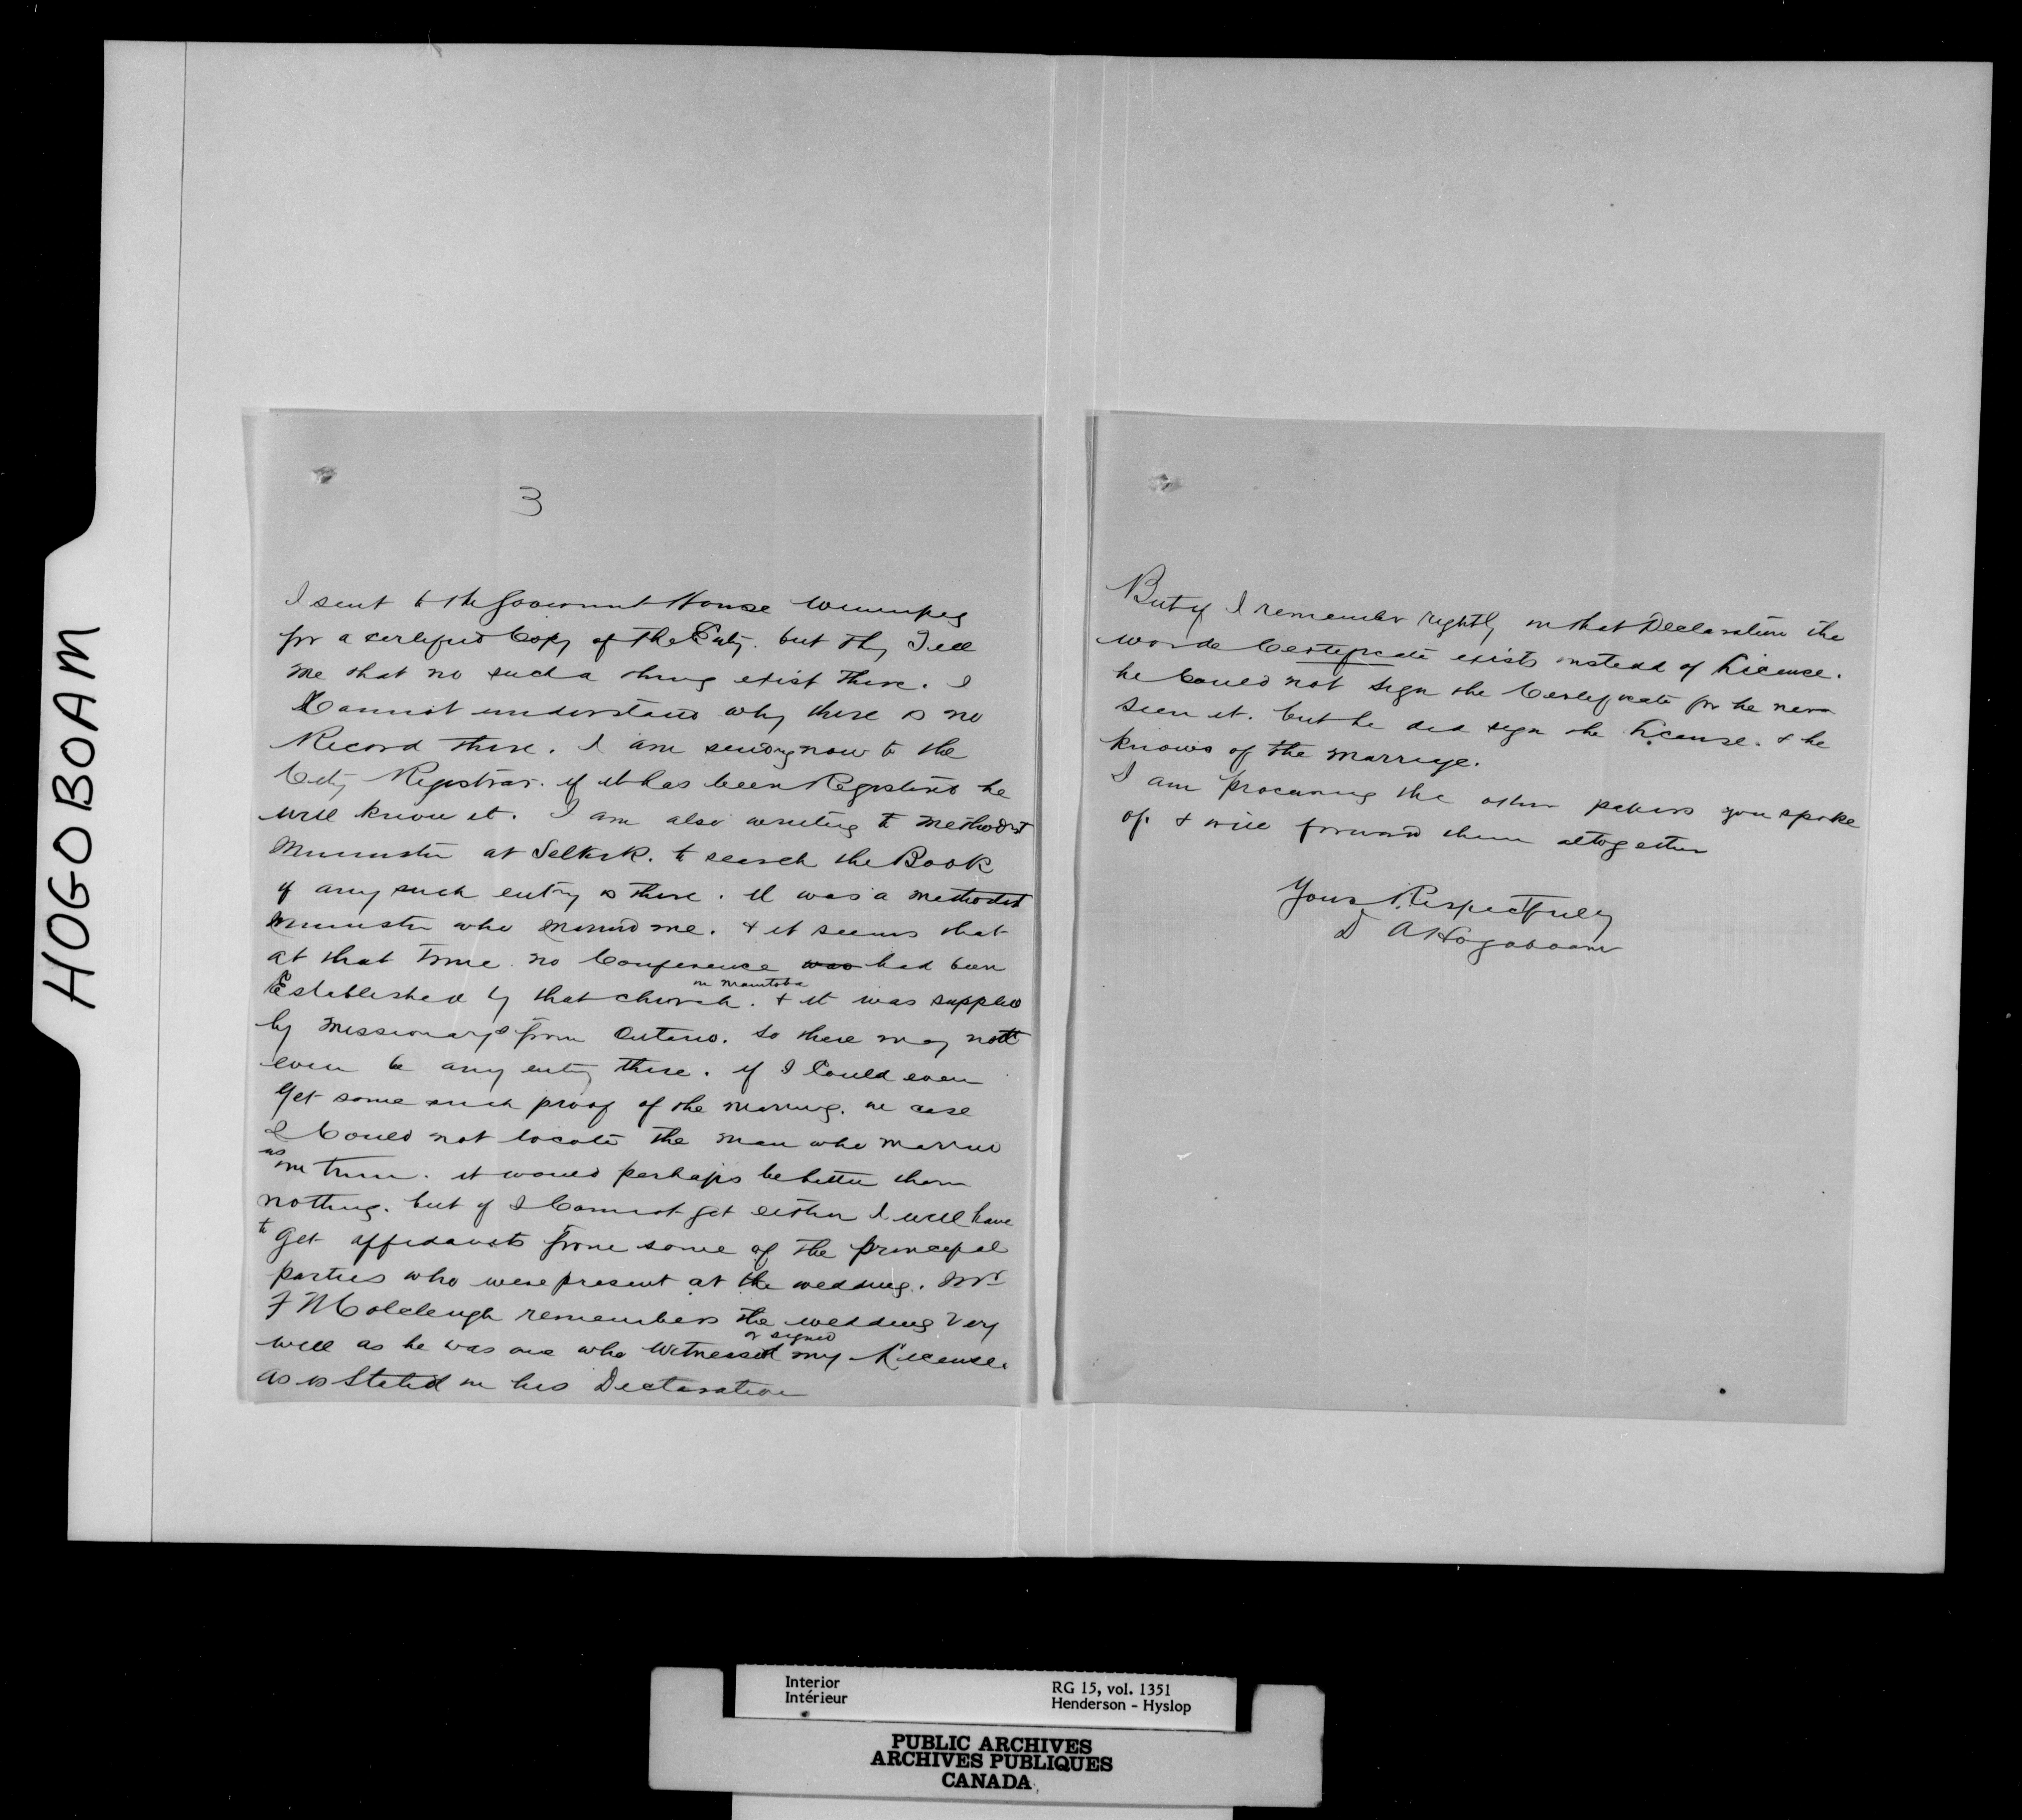 HOGOBOAM
3
I sent to the Government House Winnipeg
for a certified Copy of the Enty. but they Tell
me that no such a thing exist there. I
Cannot understand why there is no
Record there. I am sending now to the
City Registrar. if it has been Registered he
will know it. I am also writing to Methodist
Minister at Selkirk. to search the Book
if any such entry is there. it was a methodist
minister who married me. & it seems that
at that time no Conference was had been
Established by that church in Manitoba. & it was supplied
by missionarys from Ontario. so there may not
even be any enty there. if I Could even
get some such proof of the marriage. in case
I Could not locate the man who married
us in time. it would perhaps be better then
nothing. but if I Cannot get either I will have
to get affidavits from some of the principal
parties who were present at the wedding. Mr
F Colcleugh remembers the wedding very
well as he was one who Witnessed or signed my License.
as is Stated in his Declaration
But if I remember rightly in that Declaration the
words Certificate exists instead of License.
he Could not sign the Certificate for he never
seen it. but he did sign the License. & he
knows of the marriage.
I am procuring the other papers you spoke
of. & will forward them altogether
Yours Respectfully
D A Hogaboam
Interior
Intérieur
RG 15, vol. 1351
Henderson - Hyslop
PUBLIC ARCHIVES
ARCHIVES PUBLIQUES
CANADA